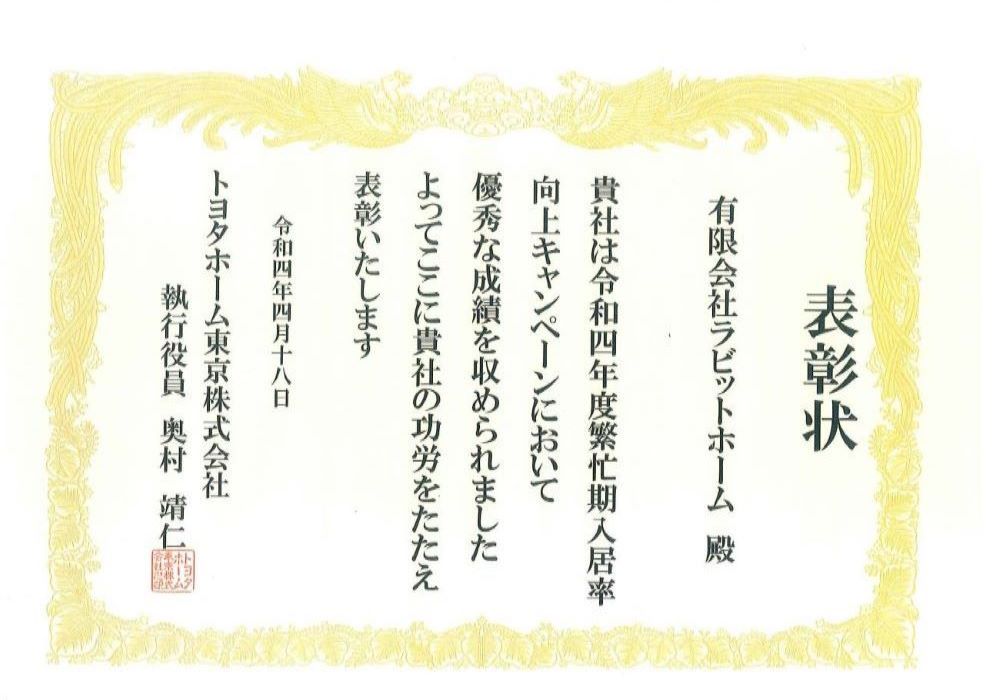 表彰状
有限会社ラビットホーム 殿
貴社は令和四年度繁忙期入居率
向上キャンペーンにおいて
優秀な成績を収められました
よってここに貴社の功労をたたえ
表彰いたします
令和四年四月十八日
トヨタホーム東京株式会社
執行役員 奥村 靖仁
トヨタ
ホーム
東京株式